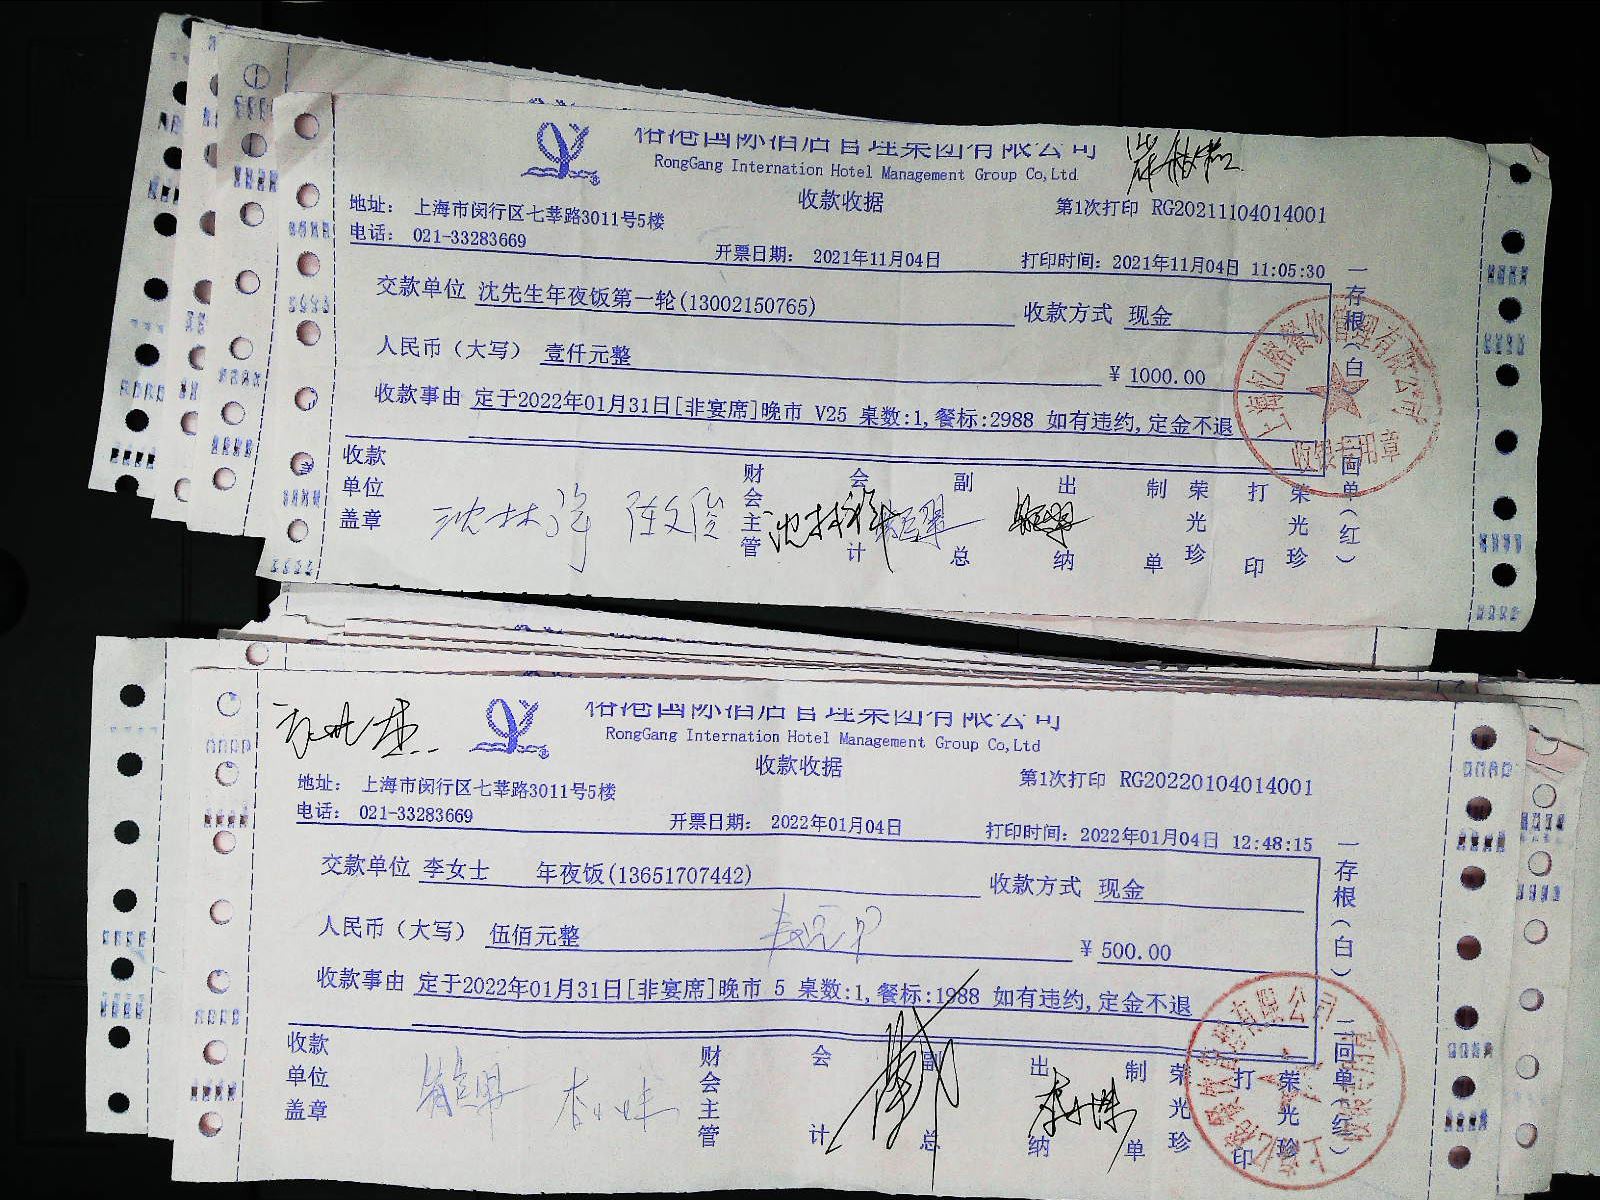 榕港国际酒店管理集团有限公司
RongGang Internation Hotel Management Group Co,Ltd
收款收据
地址： 上海市闵行区七莘路3011号5楼
第1次打印 RG20211104014001
电话： 021-33283669
开票日期： 2021年11月04日
打印时间：2021年11月04日 11:05:30
交款单位 沈先生年夜饭第一轮(13002150765)
收款方式 现金
人民币（大写） 壹仟元整
￥ 1000.00
收款事由 定于2022年01月31日[非宴席]晚市 V25 桌数:1,餐标:2988 如有违约,定金不退
一存根（白） 二回单（红）
上海忆榕餐饮管理有限公司
收银专用章
收款单位盖章
财会主管
会计
副总
出纳
制单
荣光珍
打印
荣光珍
榕港国际酒店管理集团有限公司
RongGang Internation Hotel Management Group Co,Ltd
收款收据
地址： 上海市闵行区七莘路3011号5楼
第1次打印 RG20220104014001
电话： 021-33283669
开票日期： 2022年01月04日
打印时间：2022年01月04日 12:48:15
交款单位 李女士 年夜饭(13651707442)
收款方式 现金
人民币（大写） 伍佰元整
￥ 500.00
收款事由 定于2022年01月31日[非宴席]晚市 5 桌数:1,餐标:1988 如有违约,定金不退
一存根（白） 二回单（红）
上海忆榕餐饮管理有限公司
收款单位盖章
财会主管
会计
副总
出纳
制单
荣光珍
打印
荣光珍